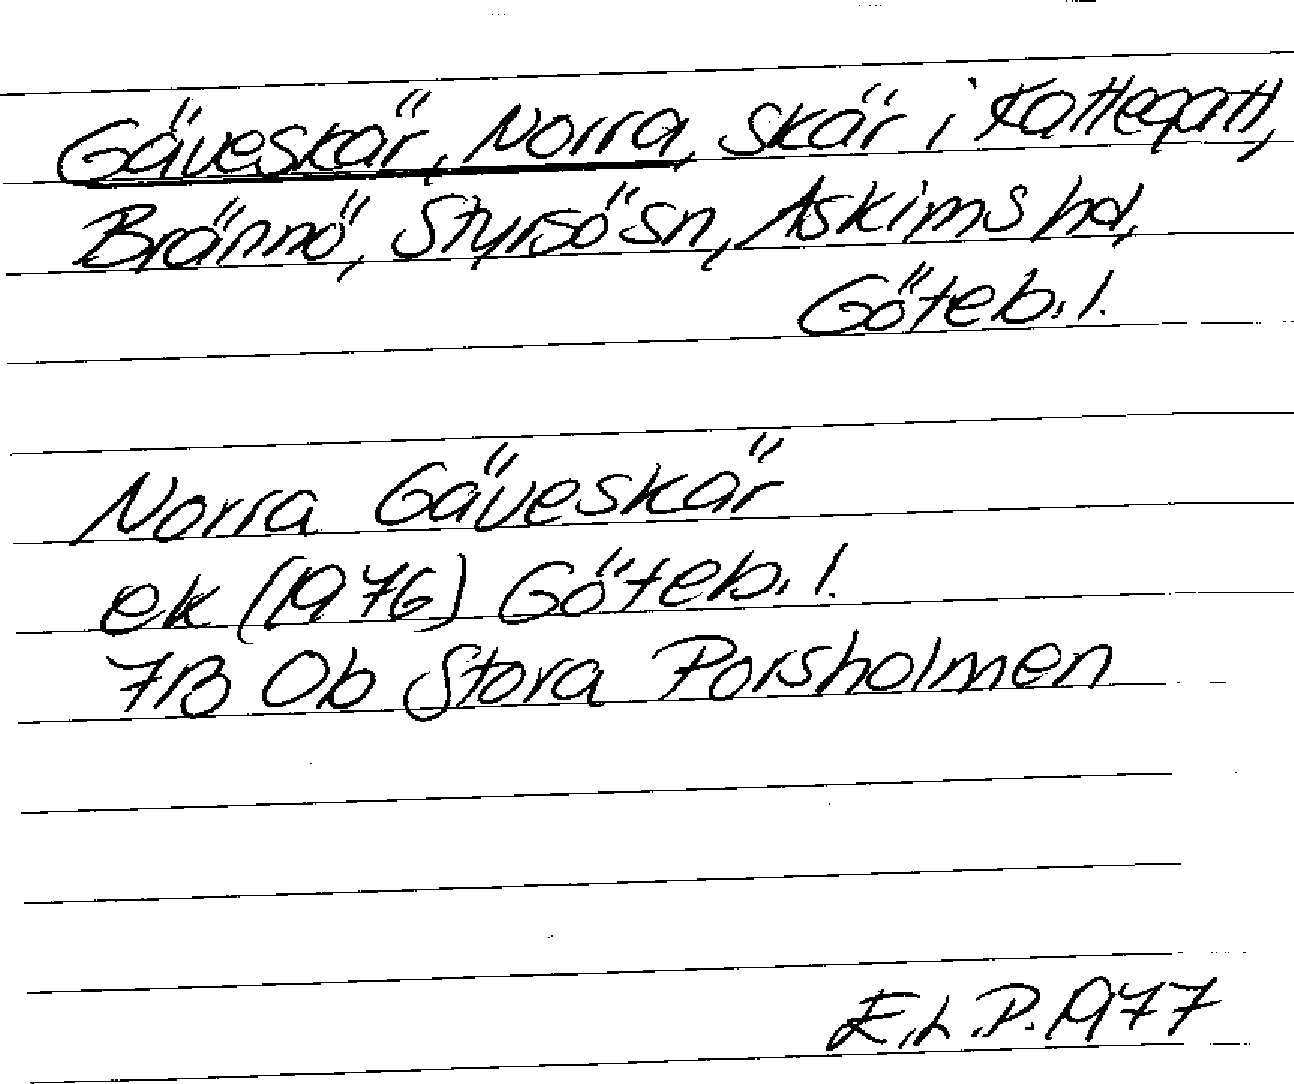 Gäveskär, Norra, skär i Kattegatt,
Brännö, Styrsö sn, Askims hd,
Göteb. l.
Norra Gäveskär
ek (1976) Göteb. l.
7B Ob Stora Porsholmen
E.L.P. 1977